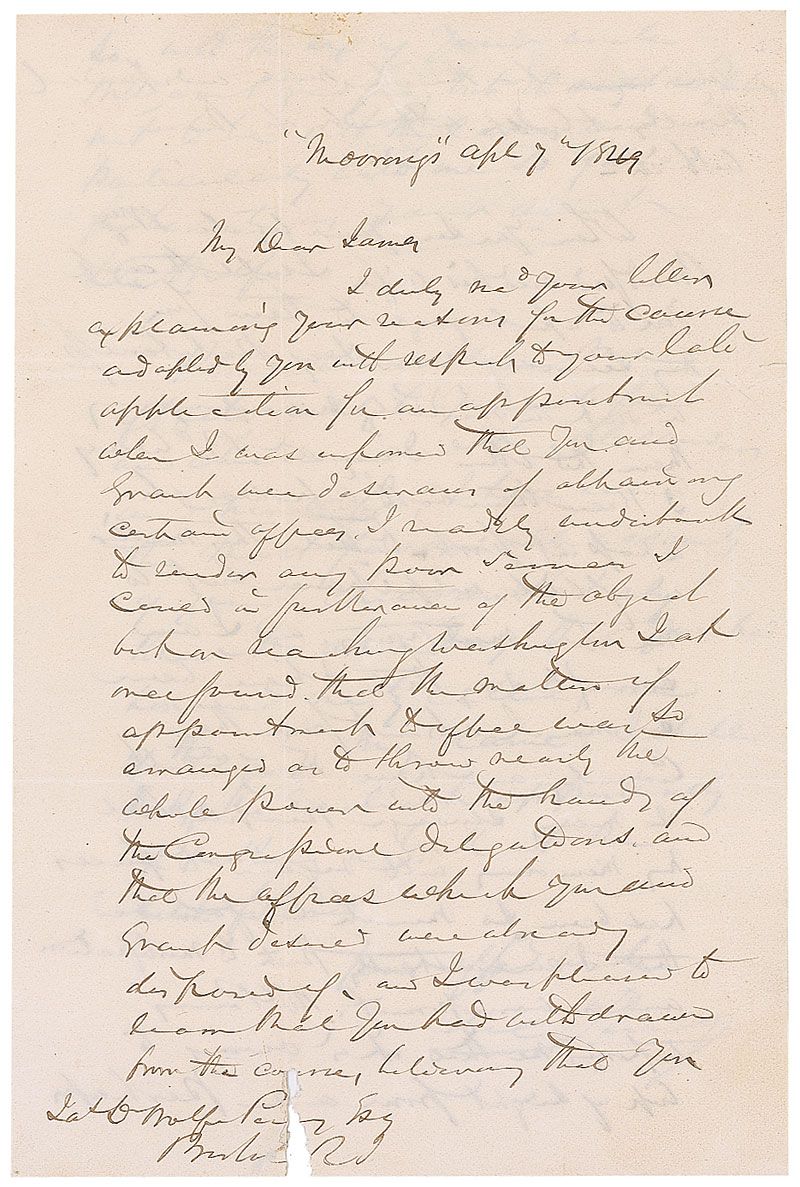 "Moorings" Apl 7th 1849
My Dear James
I duly recd your letter
explaining your reasons for the course
adopted by you with respect to your late
application for an appointment
when I was informed that you and
Grant were desirous of obtaining
certain offices, I readily undertook
to render any poor services I
could in furtherance of the object
but on reaching Washington I at
once found that the matter of
appointment to office was so
arranged as to throw nearly the
whole power into the hands of
the Congressional delegations, and
that the offices which you and
Grant desired were already
disposed of, and I was pleased to
learn that you had withdrawn
from the course, believing that you
Jas D Wolfe Perry Esq
Bristol RI